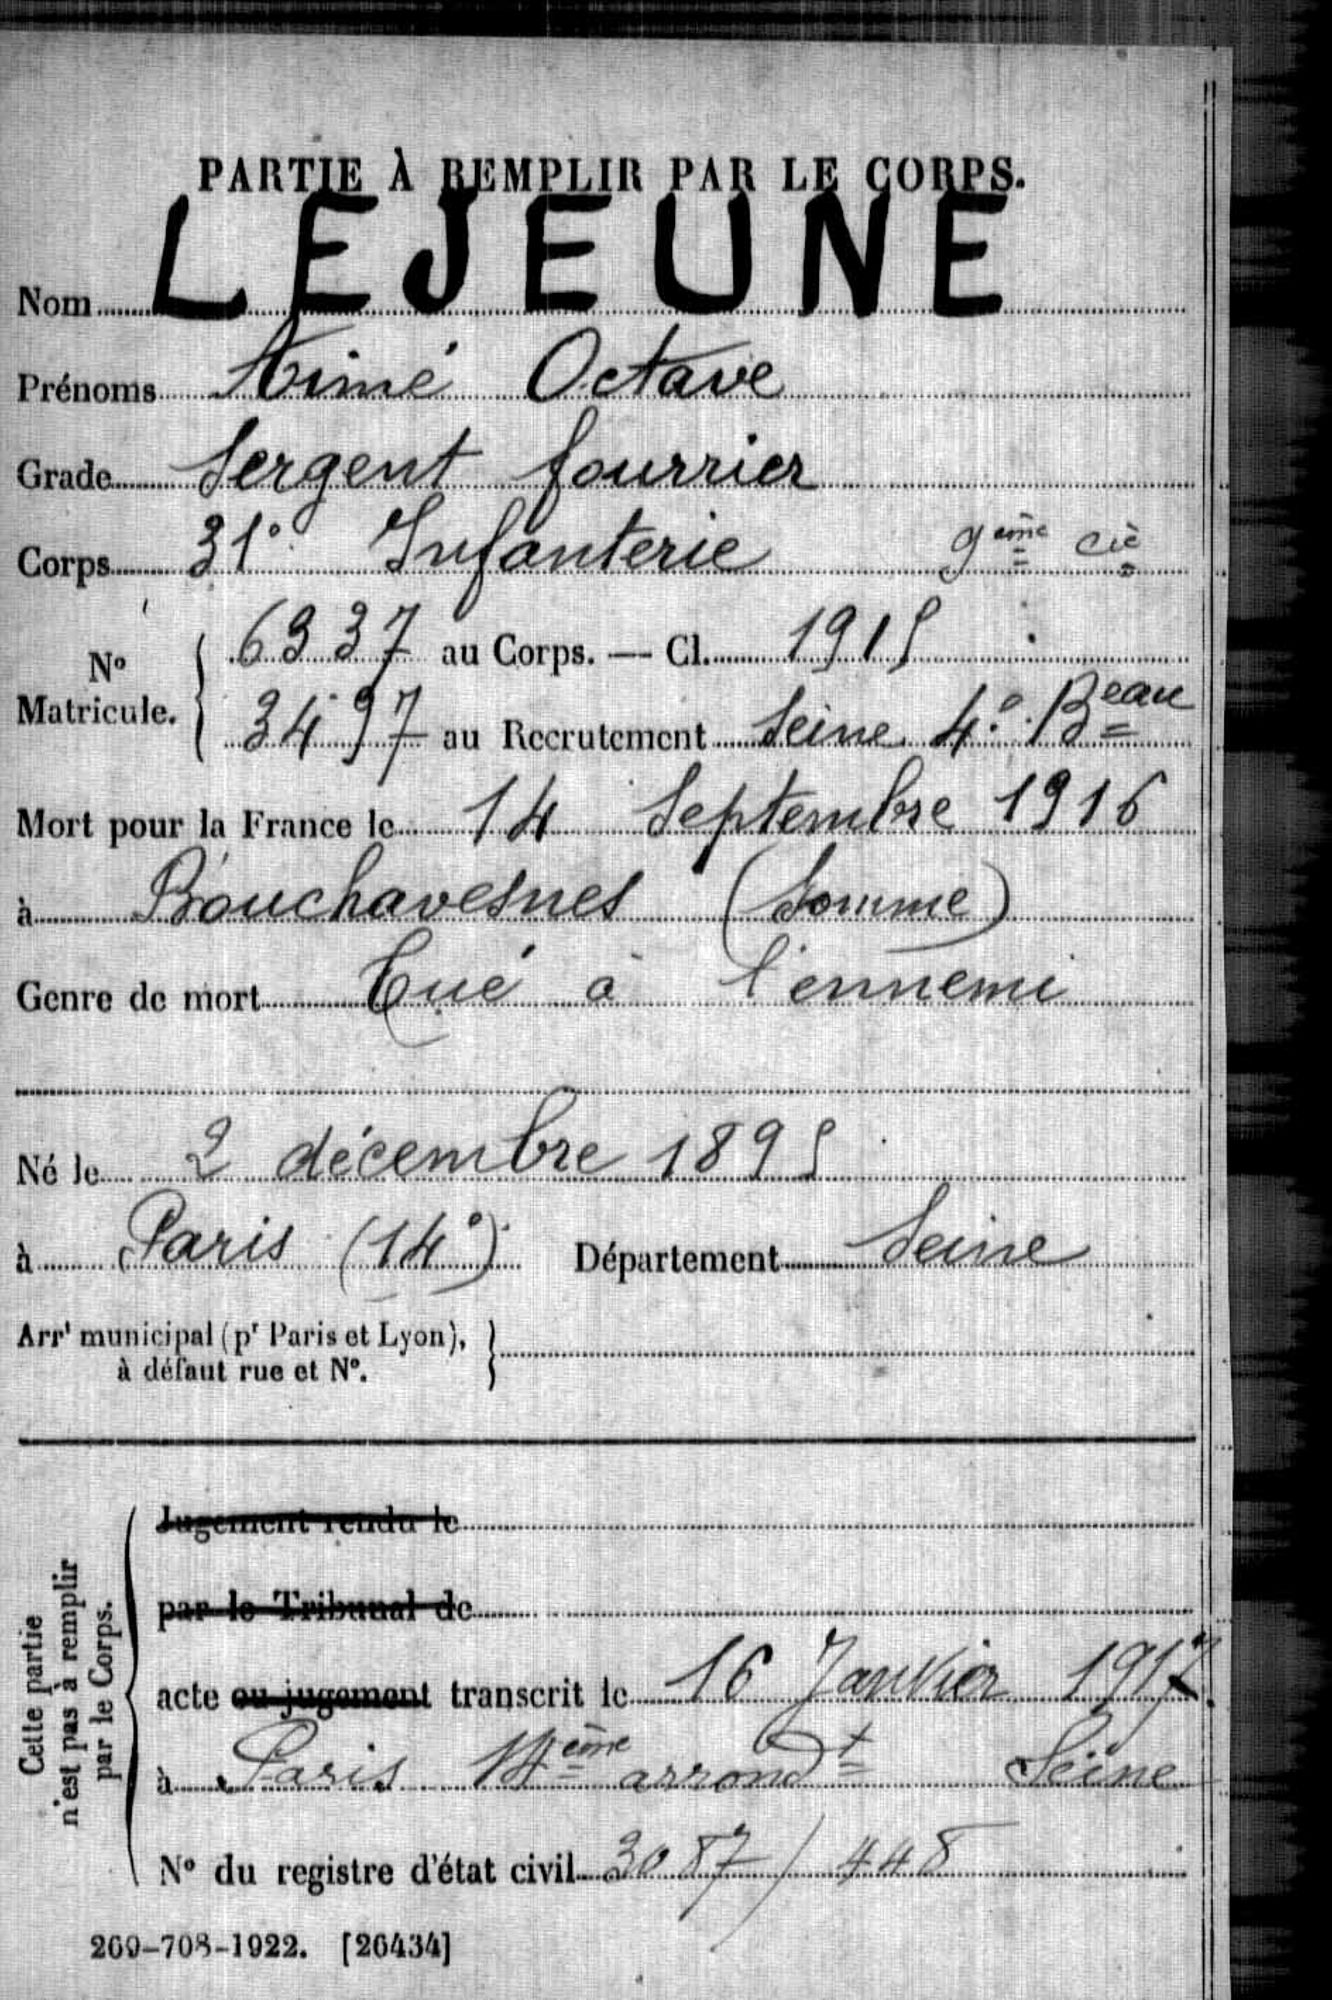 PARTIE À REMPLIR PAR LE CORPS.
Nom LEJEUNE
Prénoms Aimé Octave
Grade Sergent fourrier
Corps 31e Infanterie 9ème Cie
N° Matricule. { 6337 au Corps. — Cl. 1915
3497 au Recrutement Seine 4e Beau
Mort pour la France le 14 Septembre 1916
à Bouchavesnes (Somme)
Genre de mort Tué à l'ennemi
Né le 2 décembre 1895
à Paris (14e) Département Seine
Arrt municipal (pr Paris et Lyon),
à défaut rue et N°.
Cette partie
n'est pas à remplir
par le Corps.
Jugement rendu le
par le Tribunal de
acte ou jugement transcrit le 16 Janvier 1917.
à Paris 14ème arrondt Seine
N° du registre d'état civil 3087/448
269-708-1922. [26434]